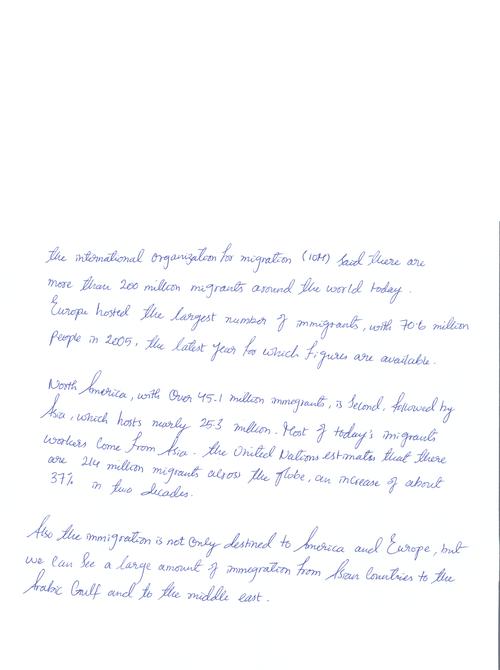 the international organization for migration (IOM) said there are
more than 200 million migrants around the world today.
Europe hosted the largest number of immigrants, with 70.6 million
people in 2005, the latest year for which figures are available.
North America, with over 45.1 million immegrants, is second, followed by
Asia, which hosts nearly 25.3 million. Most of today's migrants
workers come from Asia. the United Nations estimates that there
are 214 million migrants across the globe, an increase of about
37% in two decades.
Also the immigration is not only destined to America and Europe, but
we can see a large amount of immegration from Asian countries to the
Arabic Gulf and to the middle east.